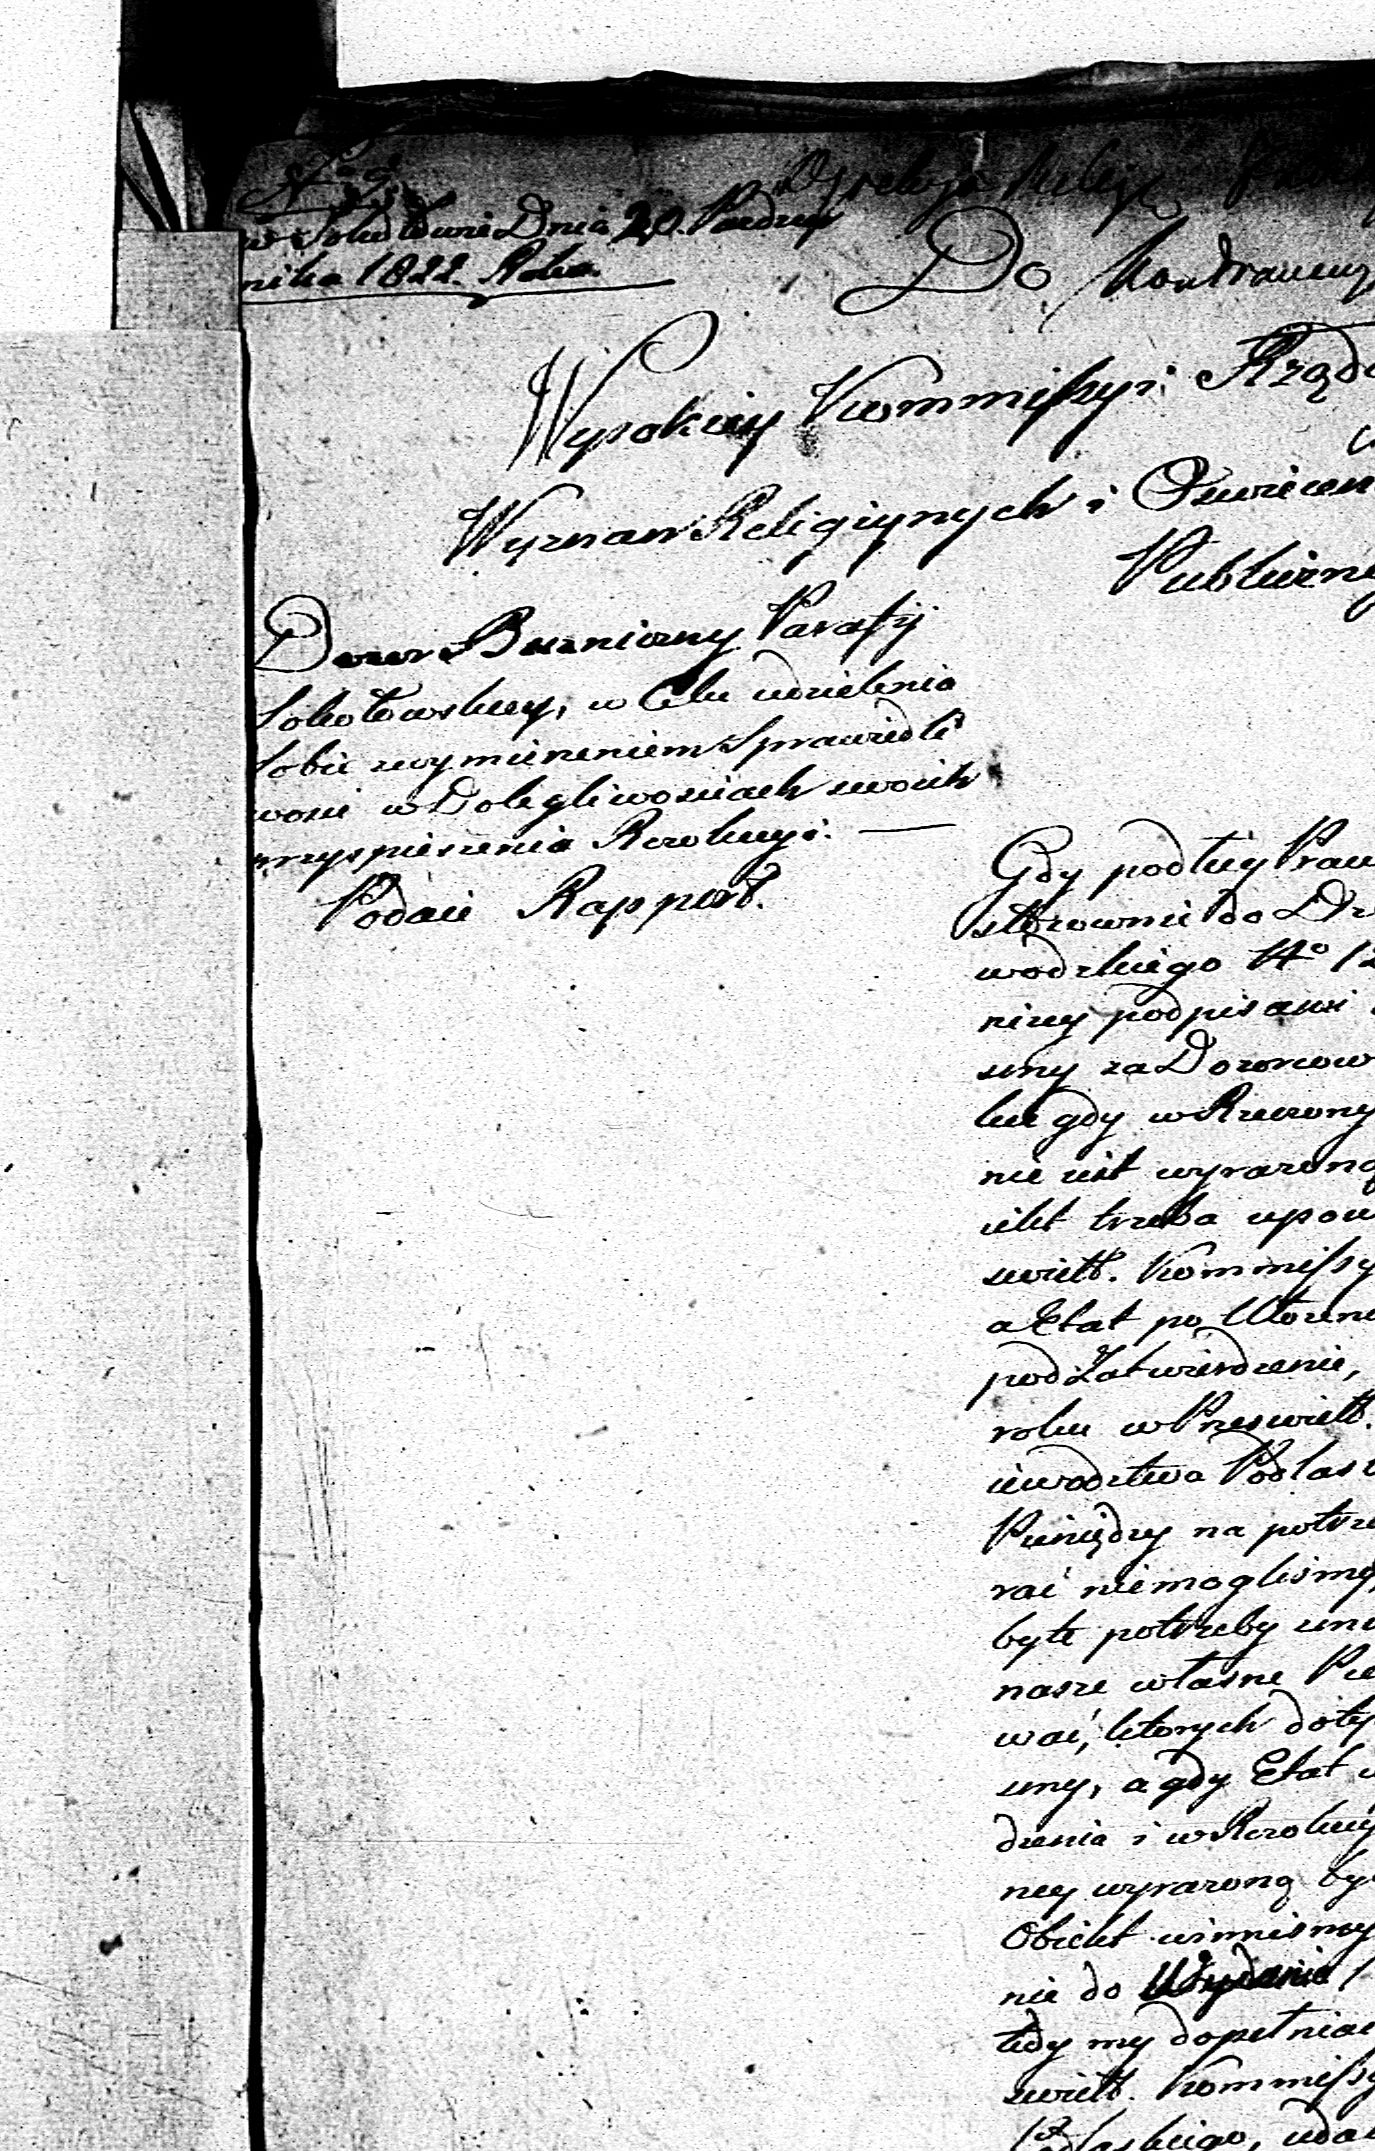 w Sokołowie Dnia 20. Paździer
nika 1822. Roku.
Do
Wysokiey Kommissyi Rządo
Wyznan Religiynych i Oswiecen
Publiczne
Dozor Bozniczny Parafij
Sokołowskiey, w Celu udzielenia
Sobie wymiereniem Sprawiedli
wosci w Dolegliwosciach swoich
przyspieszenia Rezolucyi. —
Podaie Rapport.
Gdy podług Praw
stosownie do Dz
wodzkiego No 12
niżey podpisani
smy za Dozorcow
lecz gdy w Rzeczony
nie iest wyrazono
iekt trzeba upow
swiett. Kommissy
a Etat po Utorzo
pod Zatwierdzenie,
roku w Przeswiett.
iewodztwa Podlas
Pieniędzy na potrze
rać niemoglismy,
byłe potrzeby
nasze własne Pie
wać, ktorych doty
smy, a gdy Etat
dzenia i w Rezolucy
ney wyrazono by
Obiekt winnismy
nie do
tedy my dopełniai
swiett. Kommissy
Podlaskiego, uda